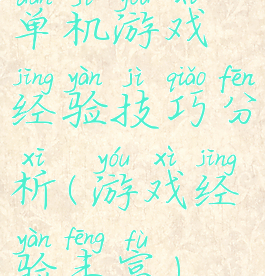 dān jī yóu xì
单机游戏
jīng yàn jì qiǎo fēn
经验技巧分
xī yóu xì jīng
析(游戏经
yàn fēng fù
验丰富)